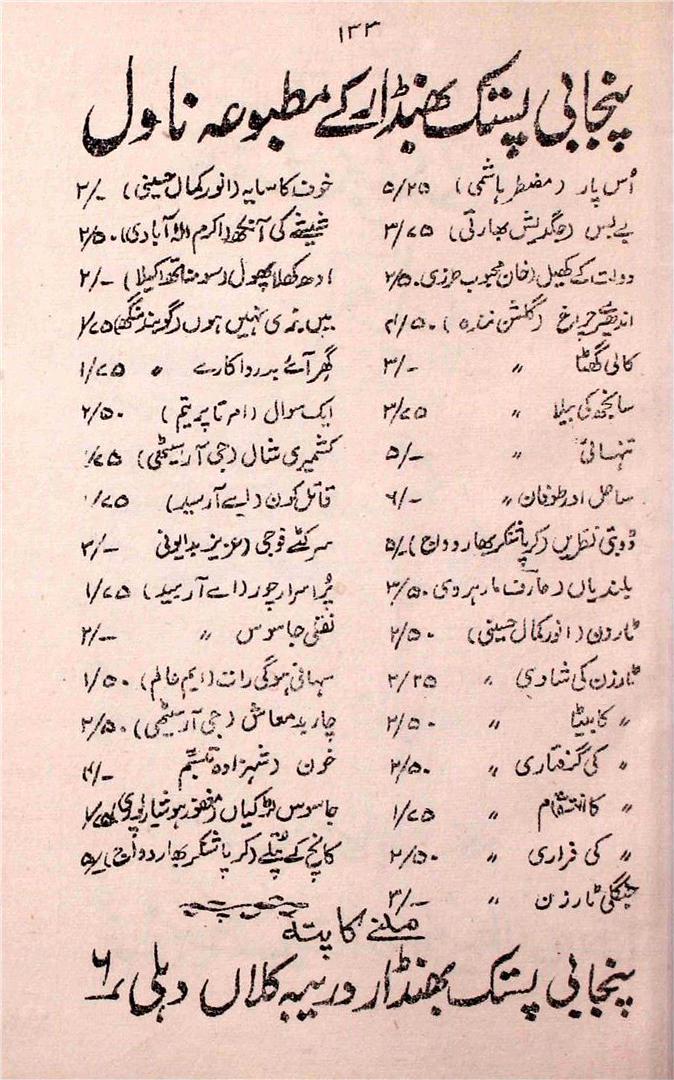 ۱۳۳
پنجابی پستک بھنڈار کے مطبوعہ ناول
اُس پار (مضطر ہاشمی) ۵/۲۵
بے بس (جگدیش بھارتی) ۳/۷۵
دولت کے کھیل (خان محبوب طرزی) ۲/۵۰
اندھیرے چراغ (گلشن نندہ) ۴/۵۰
کالی گھٹا " ۳/-
سانجھ کی بیلا " ۳/۷۵
تنہائی " ۵/-
ساحل اور طوفان " ۶/-
ڈوبتی نظریں (کرپا شنکر بھاردواج) ۵/-
بلندیاں (عارف مارہروی) ۳/۵۰
ٹارزن (انور کمال حسینی) ۲/۵۰
ٹارزن کی شادی " ۲/۲۵
" کا بیٹا " ۲/۵۰
" کی گرفتاری " ۲/۵۰
" کا انتقام " ۱/۷۵
" کی فراری " ۲/۵۰
جنگلی ٹارزن " ۳/-
خوف کا سایہ (انور کمال حسینی) ۲/-
شیشے کی آنکھ (اکرم الہ آبادی) ۲/۵۰
ادھ کھلا پھول (سومناتھ اکیلا) ۲/-
میں نرتکی نہیں ہوں (گوبند سنگھ) ۱/۷۵
گھر آئے بدرا کارے " ۱/۷۵
ایک سوال (امرتا پریتم) ۲/۵۰
کشمیری شال (جی آر سیٹھی) ۱/۷۵
قاتل کون (اے آر سید) ۱/۷۵
سر کٹے فوجی (عزیز بدایونی ۲/-
پُراسرار چور (اے آر سید) ۱/۷۵
نقلی جاسوس " ۲/-
سہانی ہوگی رات (ایم عالم) ۱/۵۰
چار بدمعاش (جی آر سیٹھی) ۲/۵۰
خون (شہزادہ تبسم ۴/-
جاسوس لڑکیاں (مغفور ہوشیارپوری) ۱/۷۵
کانچ کے پتلے (کرپا شنکر بھاردواج) ۵/-
ملنے کا پتہ
پنجابی پستک بھنڈار دریبہ کلاں دہلی ۶